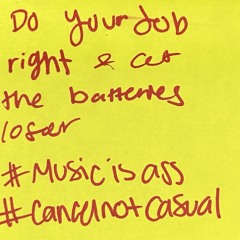 Do your Job
right & get
the batteries
loser
#Music is ass
#Cancel not Casual